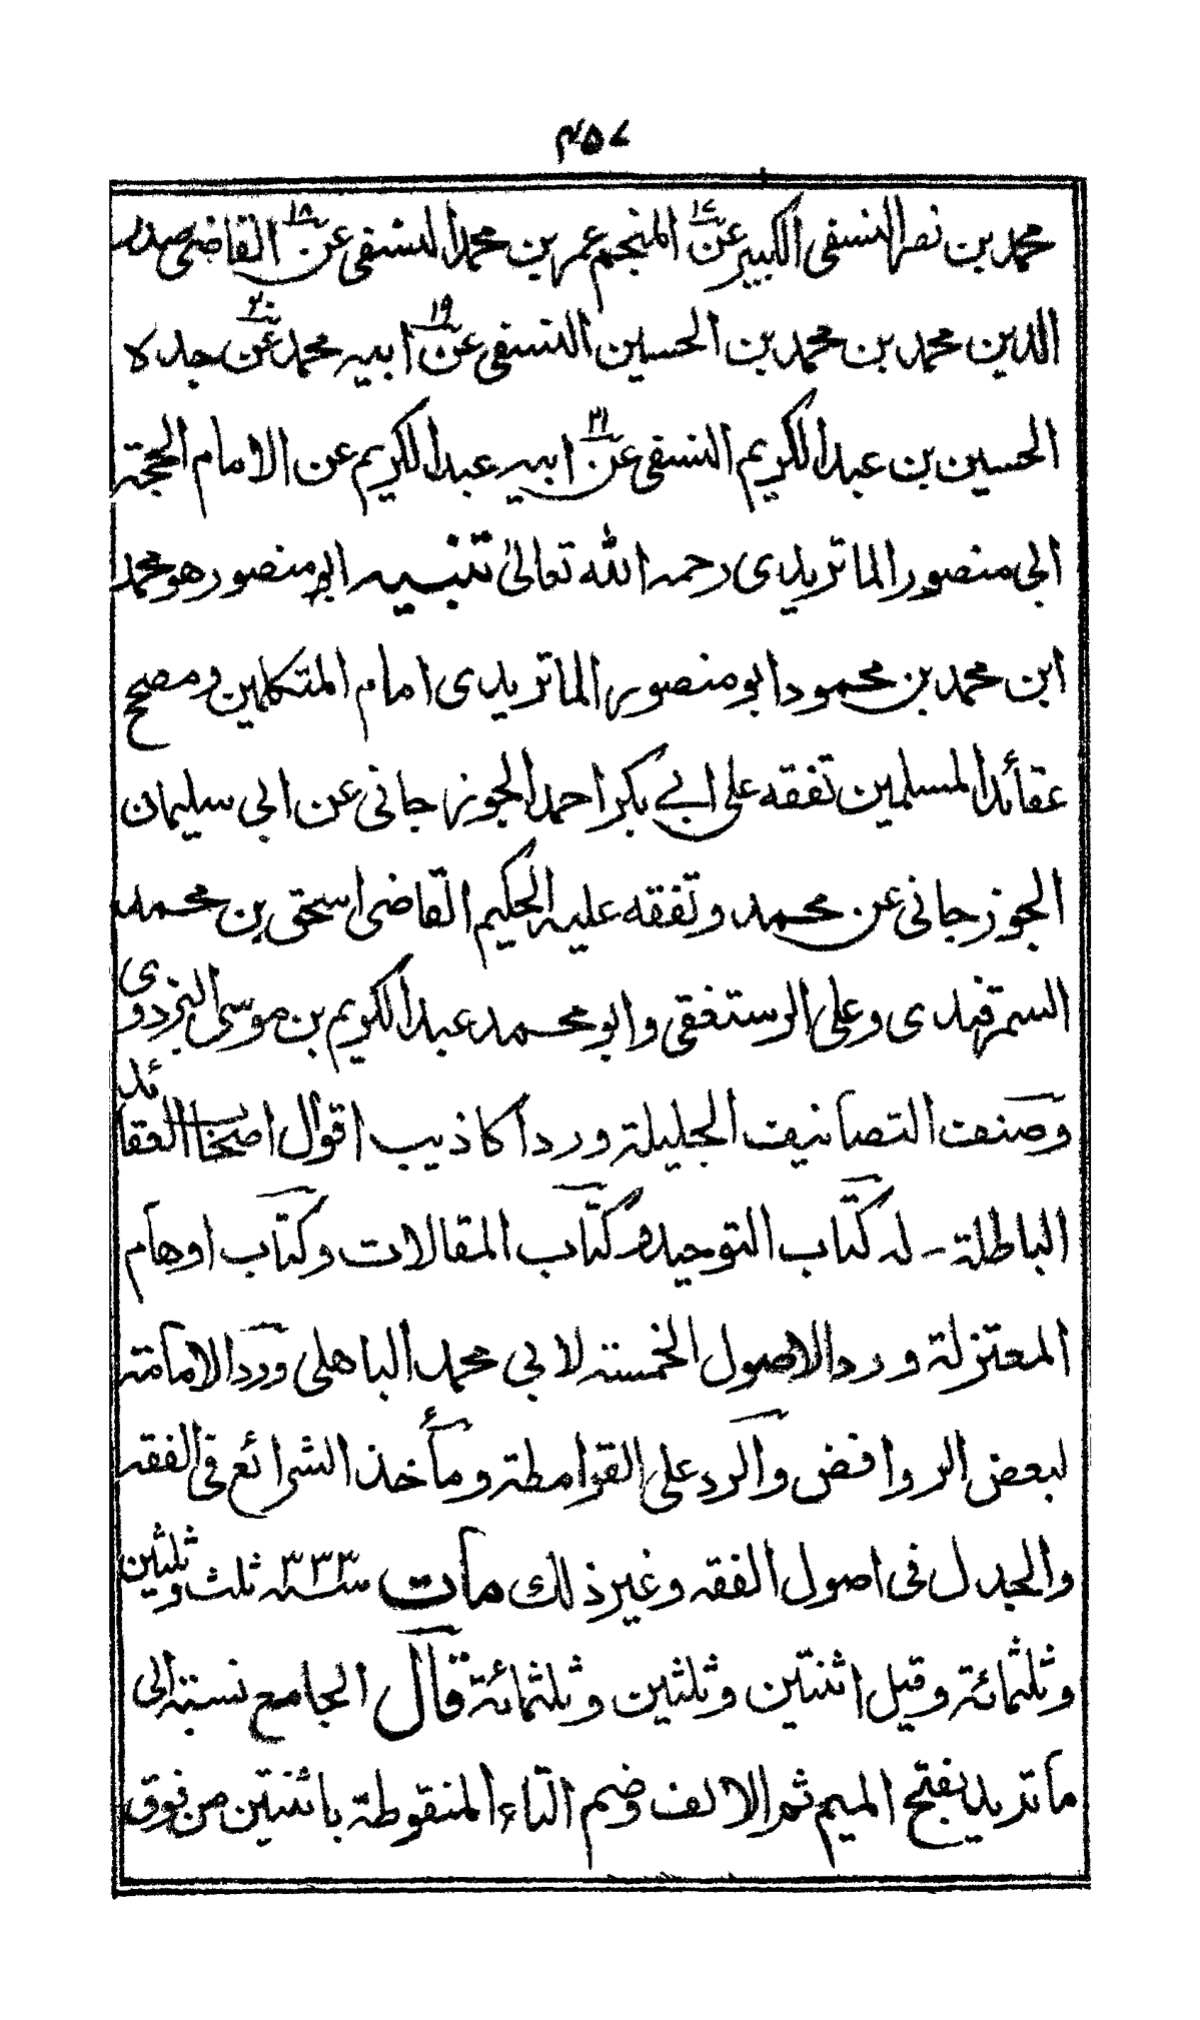 ۴۵۷
محمد بن نصر النسفی الکبیر عن ۱۷ المنجم عمر بن محمد النسفی عن ۱۸ القاضی صدر
الدین محمد بن محمد بن الحسین النسفی عن ۱۹ ابیه محمد عن ۲۰ جده
الحسین بن عبد الکریم النسفی عن ۲۱ ابیه عبد الکریم عن الامام الحجة
ابی منصور الماتریدی رحمه الله تعالیٰ تنبیه ابو منصور هو محمد
ابن محمد بن محمود ابو منصور الماتریدی امام المتکلمین و مصحح
عقائد المسلمین تفقه علی ابی بکر احمد الجوزجانی عن ابی سلیمان
الجوزجانی عن محمد و تفقه علیه الحکیم القاضی اسحق بن محمد
السمرقندی و علی الرستغفی و ابو محمد عبد الکریم بن موسی البزدوی
وصنف التصانیف الجلیلة و رد اکاذیب اقوال اصحاب العقائد
الباطلة - له کتاب التوحید و کتاب المقالات و کتاب اوهام
المعتزلة و رد الاصول الخمسة لابی محمد الباهلی و رد الامامة
لبعض الروافض والرد علی القرامطة و مأخذ الشرائع فی الفقه
والجدل فی اصول الفقه و غیر ذلک مات سنه ۳۳۳ ثلث و ثلثین
و ثلثمائة و قیل اثنتین و ثلثین و ثلثمائة قال الجامع نسبته الی
ماترید بفتح المیم ثم الالف و ضم التاء المنقوطة باثنتین من فوق